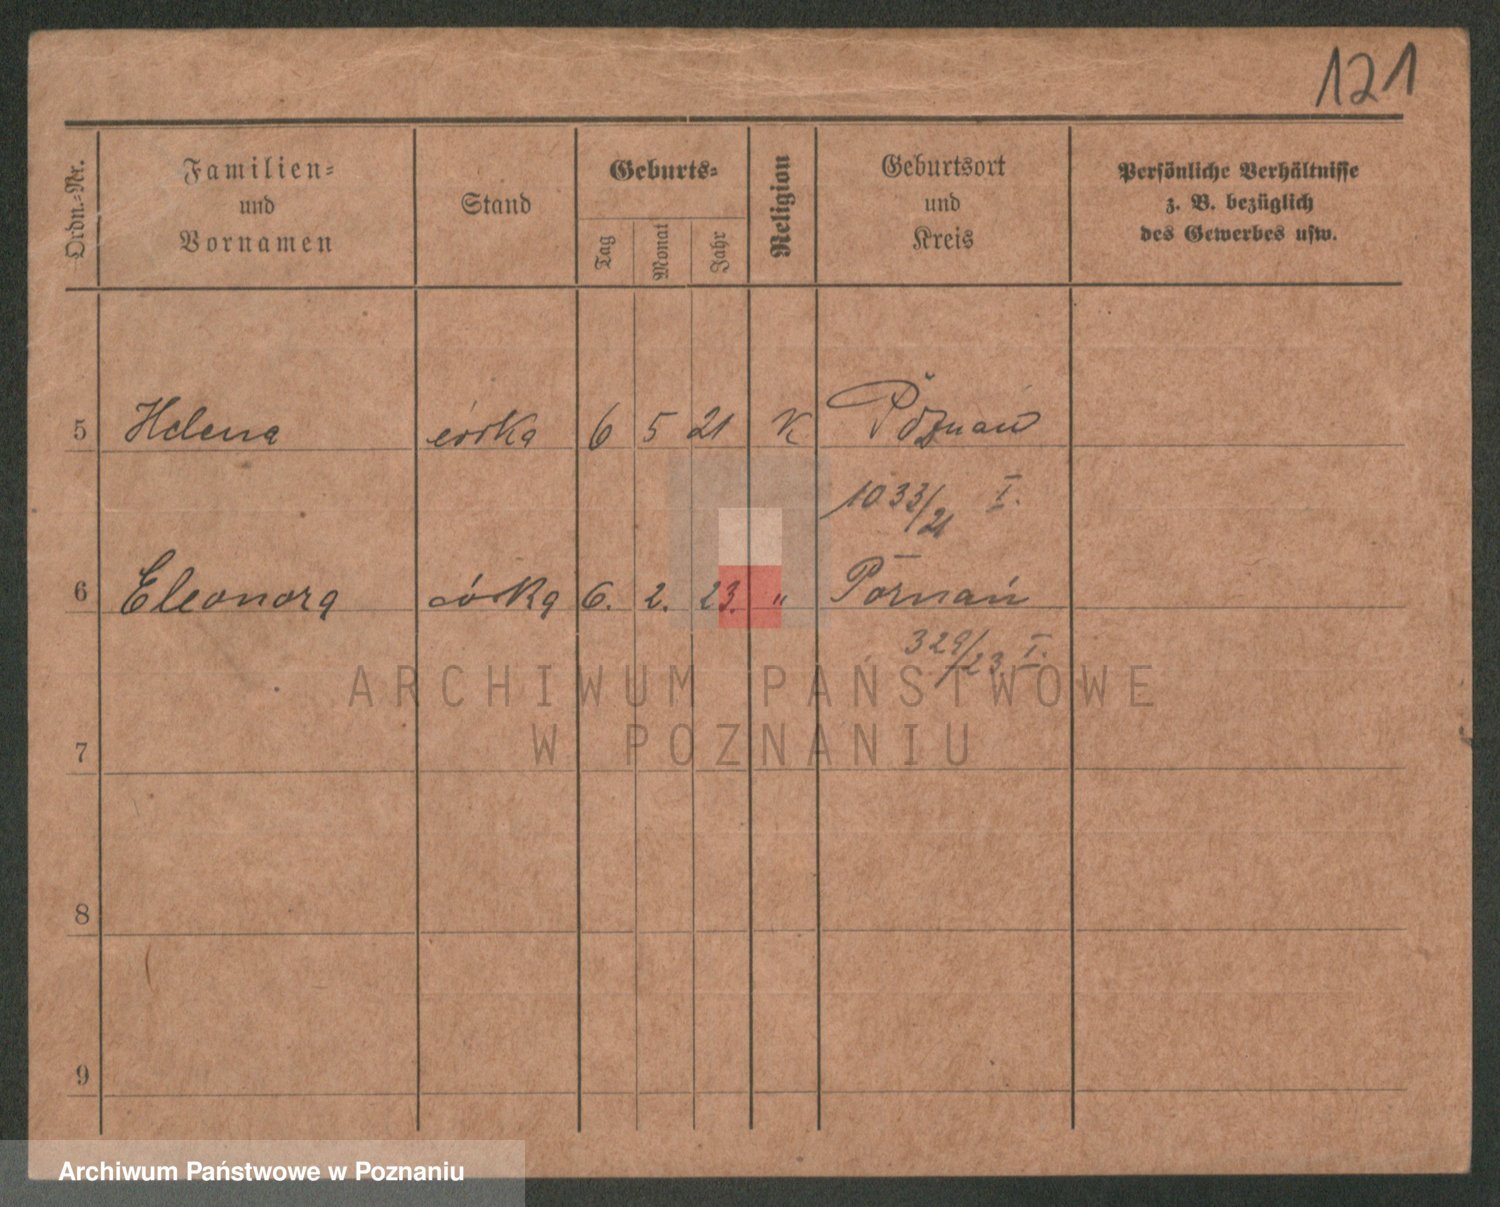 121
Ordn.-Nr.
Familien-
und
Vornamen
Stand
Geburts-
Tag
Monat
Jahr
Religion
Geburtsort
und
Kreis
Persönliche Verhältnisse
z. B. bezüglich
des Gewerbes usw.
5 Helena córka 6 5 21 K Poznań
1033/21 I.
6 Eleonora córka 6. 2. 23. " Poznań
329/23 I.
ARCHIWUM PAŃSTWOWE
W POZNANIU
7
8
9
Archiwum Państwowe w Poznaniu